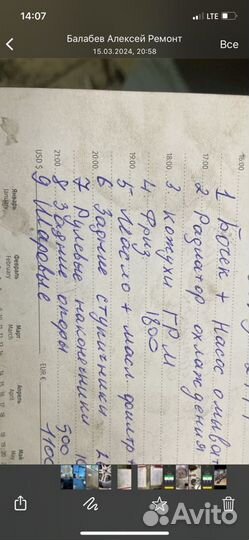 14:07
LTE
Балабев Алексей Ремонт
15.03.2024, 20:58
Все
16:00
1 Бочек + Насос омыват
17:00
2 Радиатор охлаждения
18:00
3 Кожухи ГРМ
4 Фриз 1800
19:00
5 Масло + масл. фильтр
20:00
6 Задние ступички
7 Рулевые наконечники
21:00
8 Задние опоры 500
USD $
9 Шаровые 1100
EUR €
Январь
January
Февраль
February
Март
March
Апрель
April
Май
May
Avito